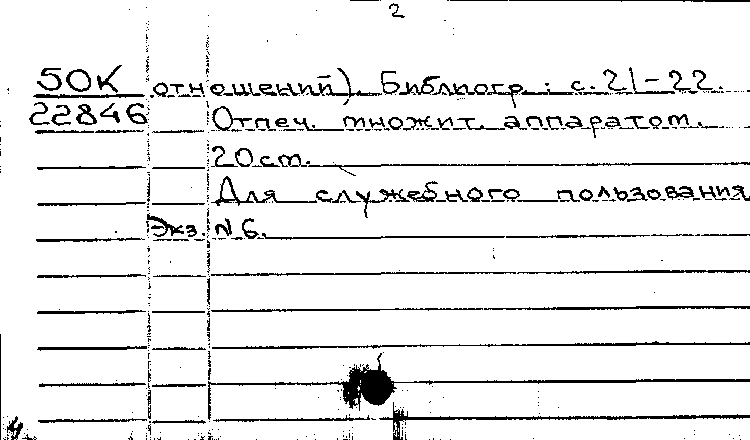 2
50К отношений). Библиогр.: с. 21-22.
22846 Отпеч. множит. аппаратом.
20 ст.
Для служебного пользования
Экз. N 6.